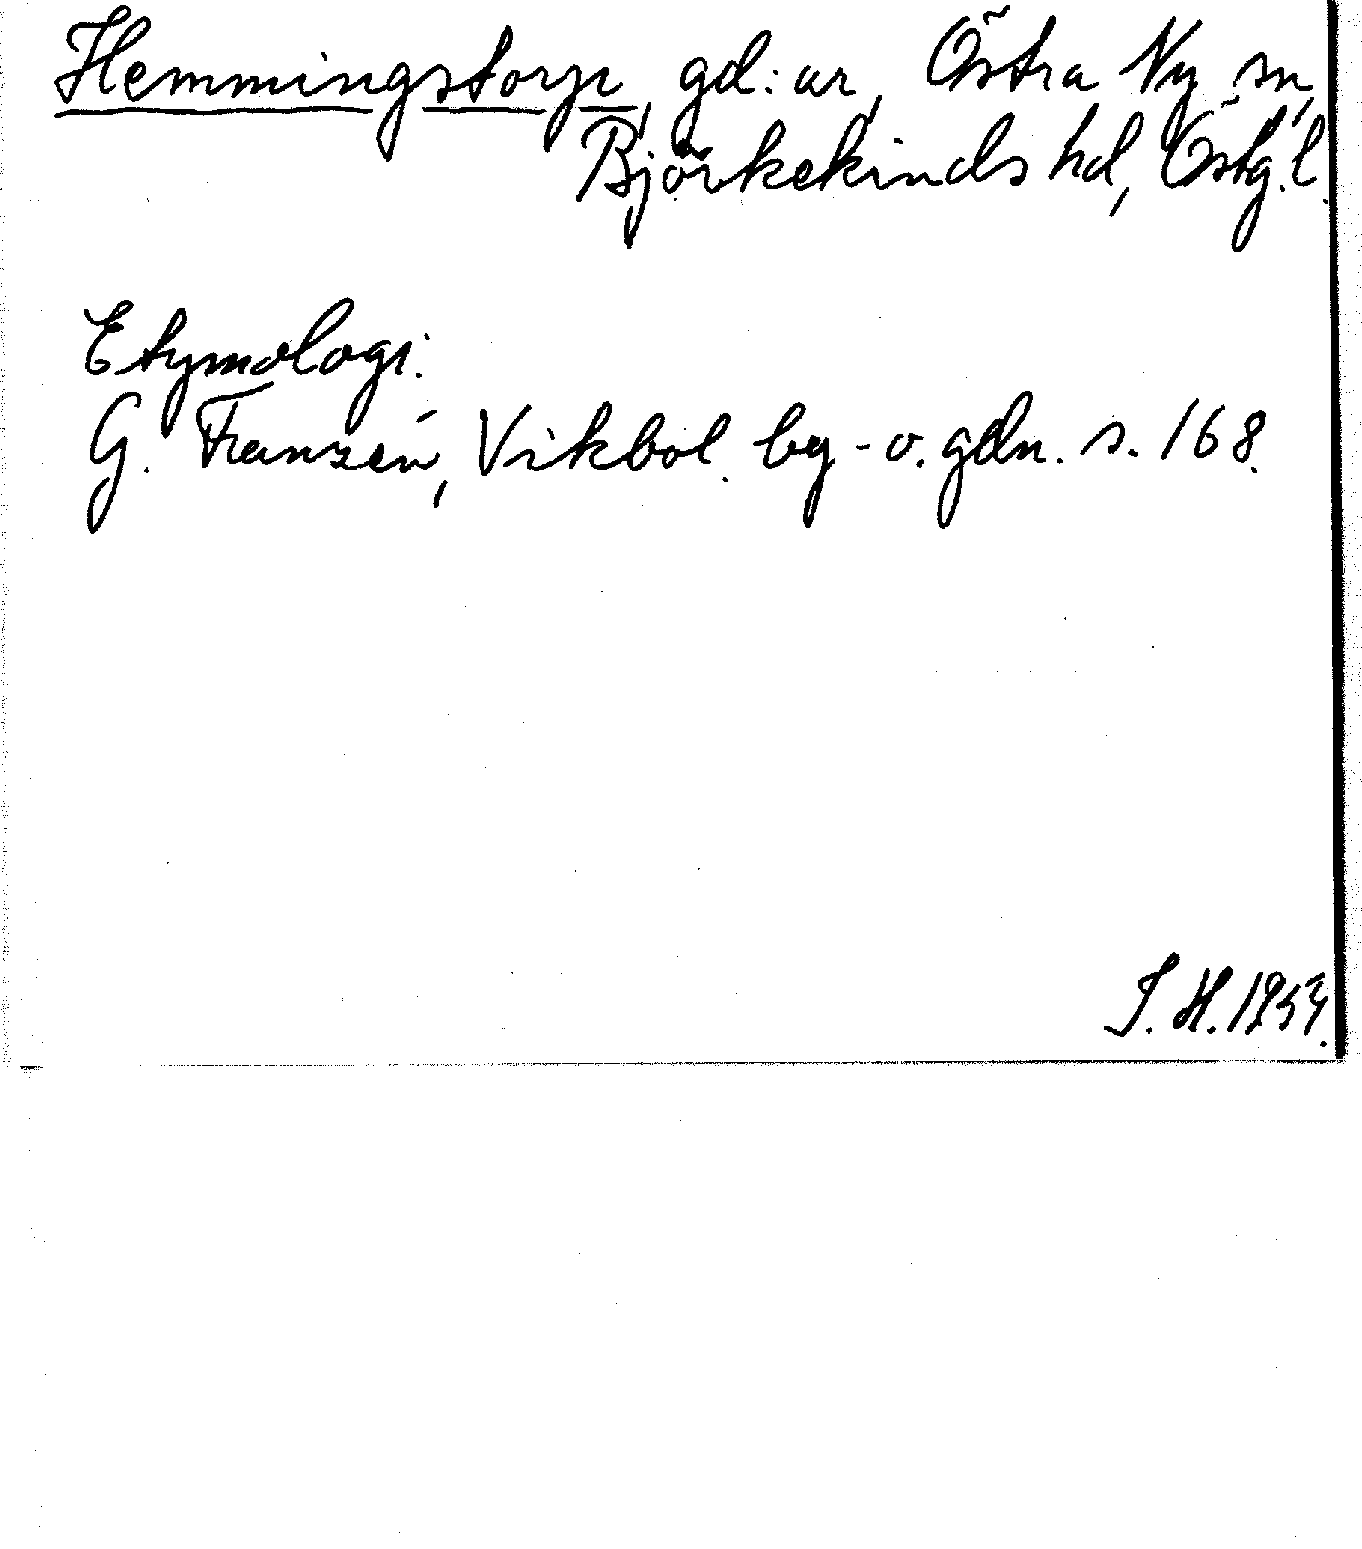 Hemmingstorp, gd:ar, Östra Ny sn,
Björkekinds hd, Östg.l.
Etymologi:
G. Franzén, Vikbol. by- o. gdn. s. 168.
S. H. 1953.